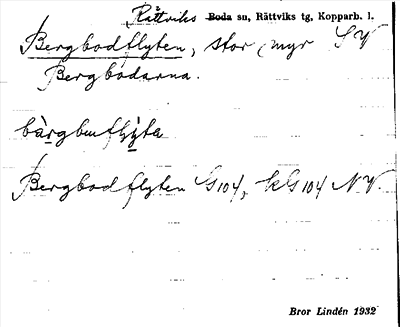 Rättviks Boda sn, Rättviks tg, Kopparb. l.
Bergbodflyten, stor myr SV
Bergbodarna.
bärgbuflýta
Bergbodflyten G104, kG104 NV.
Bror Lindén 1932